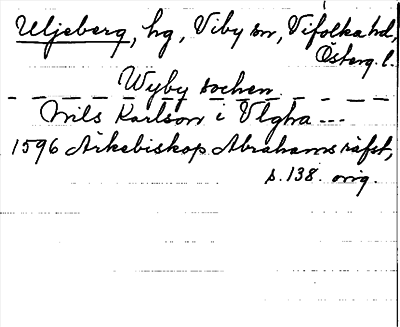 Uljeberg, hg, Viby sn, Vifolka hd,
Österg. l.
Wyby sochen
Nils Karlson i Vlgha ---
1596 Ärkebiskop Abrahams räfst,
s. 138. orig.